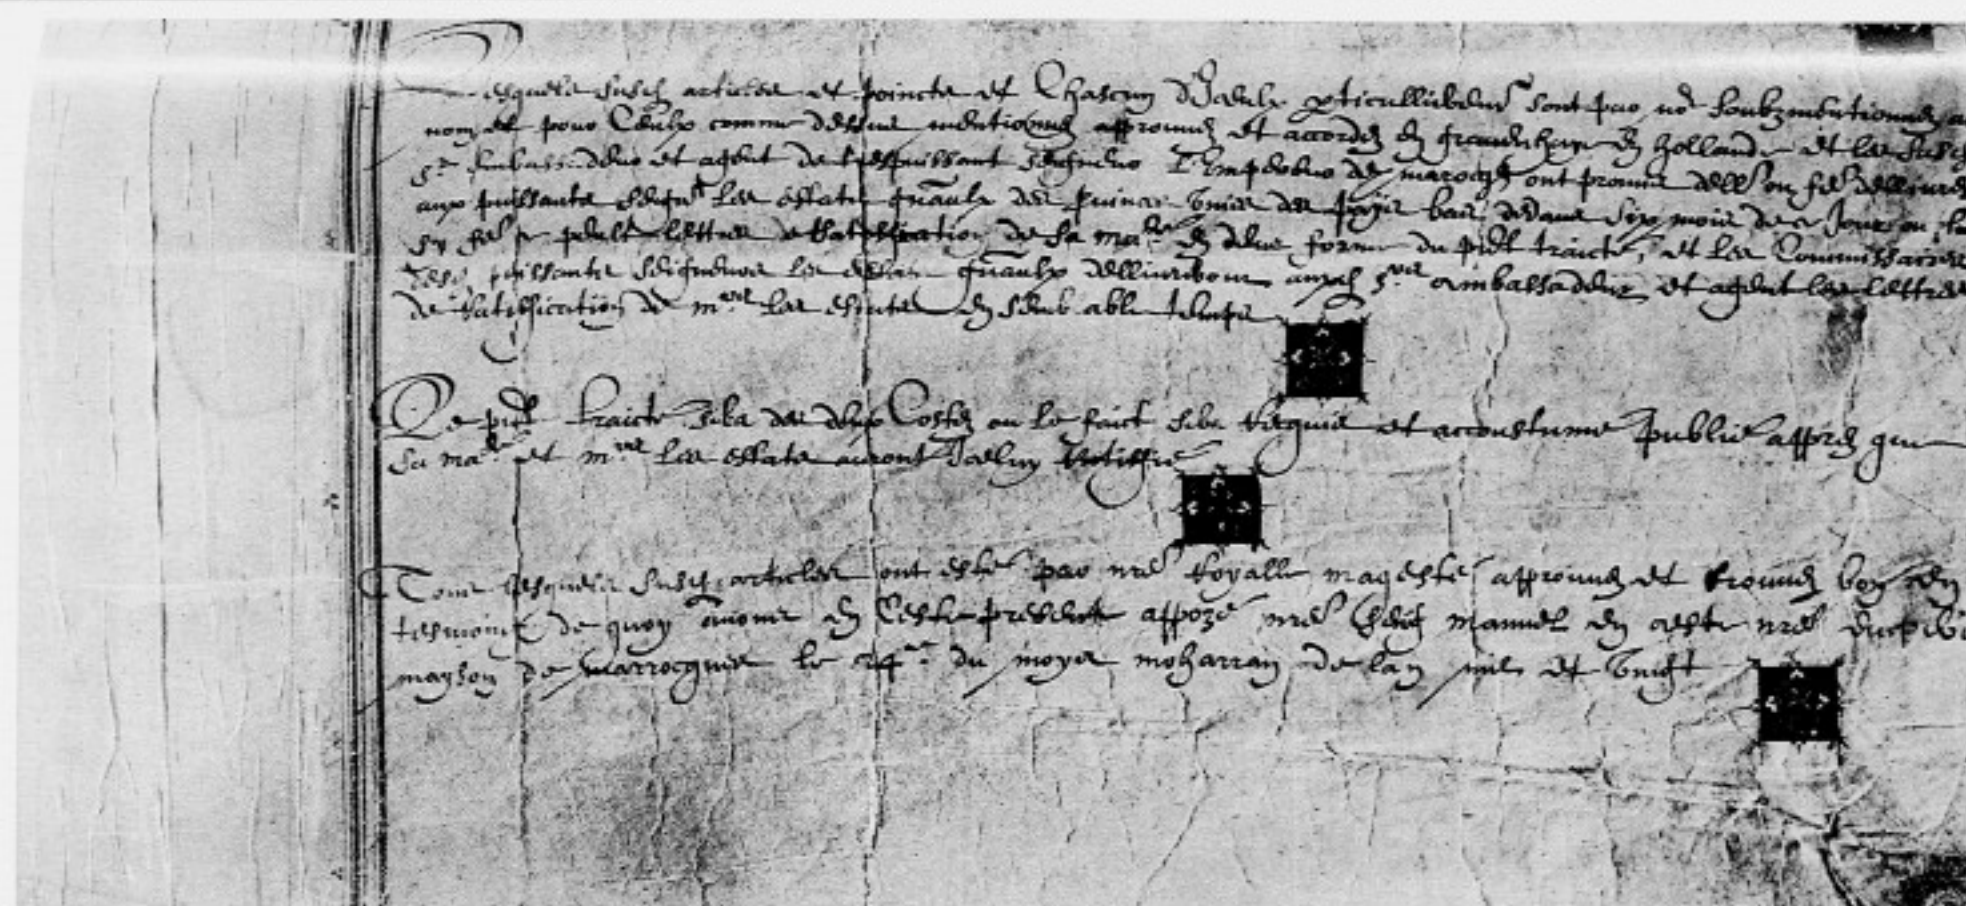 Lesquels susd articles et poincts et Chascun d'Iceulx sont par no soubzmentionnez
nom et pour Ceulx comme dessus mentionnez approuvez et accordez en gravenhage en hollande et les susd
srs Ambassadeur et agent de trespuissant seigneur l'Empereur de marocqs ont promis
aux puissants seigrs les estats gnaulx des provinces Unies des pays bas, dedans six mois de ce Jour ou
sy fere se peult lettres de Rattiffication de sa mate en deue forme du pnt traicté, et les Commissaires
puissants seigneurs les estats gnaulx delliureront auxd srs ambassadeur et agent les lettres
de Rattiffication de mrs les estats en semblable temps
Le pnt traicte sera des deux Costez ou le faict sera Requis et accoustumé publié apprez que
sa mate et mrs les estats auront Icelluy Rattiffié
Tous lesquels susd articles ont esté par nre Royalle mageste approuvez et trouvez bon en
tesmoing de quoy avons en Ceste presente appozé nre seing manuel en ceste nre
mayson de marrocques le 24me du moys moharran de lan mil et Vingt